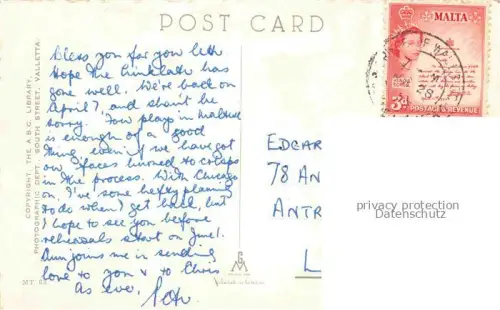 POST CARD
MALTA
3d
POSTAGE & REVENUE
Bless you for your lett
Hope the has
gone well. We're back on
April 7, and shan't be
sorry. Four plays in
is enough of a good
thing even if we have got
our faces burned to crisps
in the process. With Chicago
on, I've some hefty planning
to do when I get back, but
I hope to see you before
rehearsals start on June 1.
Ann joins me in sending
love to you & to Chris
As ever,
EDGAR
78 AN
ANTR
L
privacy protection
Datenschutz
COPYRIGHT, THE A.B.C. LIBRARY,
PHOTOGRAPHIC DEPT. SOUTH STREET, VALLETTA.
MT